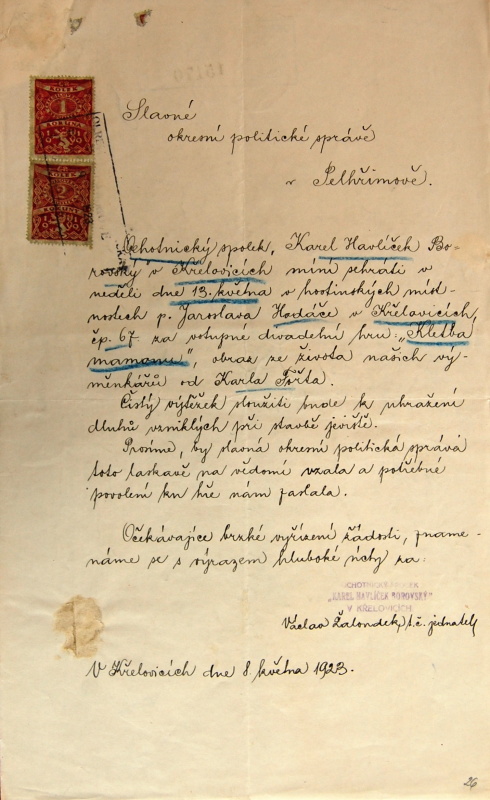 ČS
KOLEK
1
KORUNA
1919
ČS
KOLEK
2
KORUNY
Slavné
okresní politické správě
v Pelhřimově.
Ochotnický spolek, Karel Havlíček Bo-
rovský v Křelovicích míní sehráti v
neděli dne 13. května v hostinských míst-
nostech p. Jaroslava Hodáče v Křelovicích,
čp. 67 za vstupné divadelní hru: „Kletba
mamonu", obraz ze života našich vý-
měnkářů od Karla
Čistý výtěžek sloužiti bude k uhražení
dluhů vzniklých při stavbě jeviště.
Prosíme, by slavná okresní politická správa
toto laskavě na vědomí vzala a potřebné
povolení ku hře nám zaslala.
Očekávajíce brzké vyřízení žádosti, zname-
náme se s výrazem hluboké úcty za:
OCHOTNICKÝ SPOLEK
„KAREL HAVLÍČEK BOROVSKÝ"
V KŘELOVICÍCH
Václav Žalondek, t. č. jednatel,
V Křelovicích dne 8. května 1923.
26